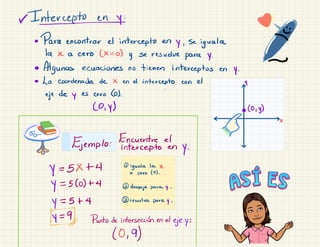 ✓ Intercepto en y:
• Para encontrar el intercepto en y, se iguala
la x a cero (x=0) y se resuelve para y.
• Algunas ecuaciones no tienen interceptos en y.
• La coordenada de x en el intercepto con el
eje de y es cero (0).
(0,y)
y
(0,y)
x
Ejemplo: Encuentre el
intercepto en y.
y = 5x + 4
y = 5(0) + 4
y = 5 + 4
y = 9
① iguala la x
a cero (0).
② despeja para y.
③ resuelve para y.
Punto de intersección en el eje y:
(0,9)
ASÍ ES